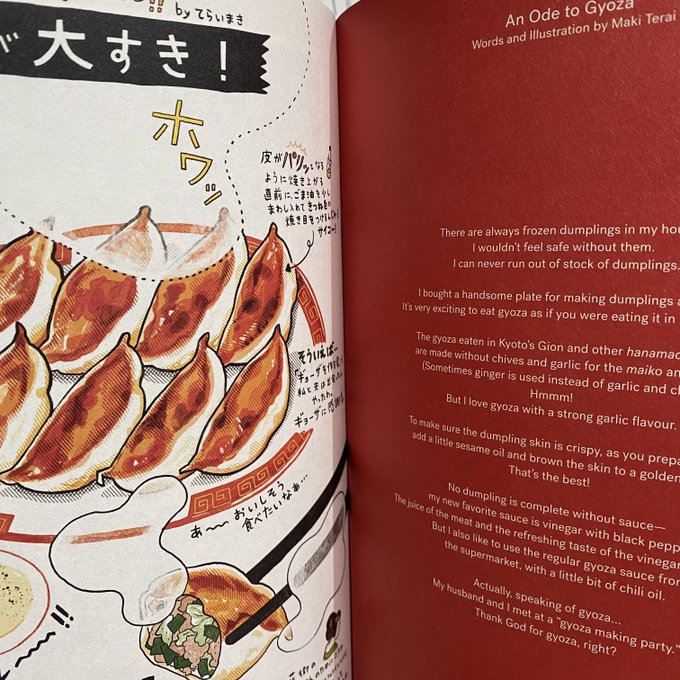 !! by てらいまき
が 大すき!
ホワッ
皮がパリッとなる
ように焼き上がる
直前に、ごま油を少し
まわし入れてきつね色の
焼き目をつけるんじゃー!
サイコー!
そういえば…
ギョーザを作る会で
私と夫は出会ったん
やったわ。
ギョーザに感謝
あ〜〜おいしそう、
食べたいなぁ…
!!
An Ode to Gyoza
Words and Illustration by Maki Terai
There are always frozen dumplings in my hou
I wouldn't feel safe without them.
I can never run out of stock of dumplings.
I bought a handsome plate for making dumplings a
It's very exciting to eat gyoza as if you were eating it in
The gyoza eaten in Kyoto's Gion and other hanamac
are made without chives and garlic for the maiko an
(Sometimes ginger is used instead of garlic and ch
Hmmm!
But I love gyoza with a strong garlic flavour.
To make sure the dumpling skin is crispy, as you prepa
add a little sesame oil and brown the skin to a golden
That's the best!
No dumpling is complete without sauce—
my new favorite sauce is vinegar with black pepp
The juice of the meat and the refreshing taste of the vinegar
But I also like to use the regular gyoza sauce from
the supermarket, with a little bit of chili oil.
Actually, speaking of gyoza...
My husband and I met at a "gyoza making party."
Thank God for gyoza, right?